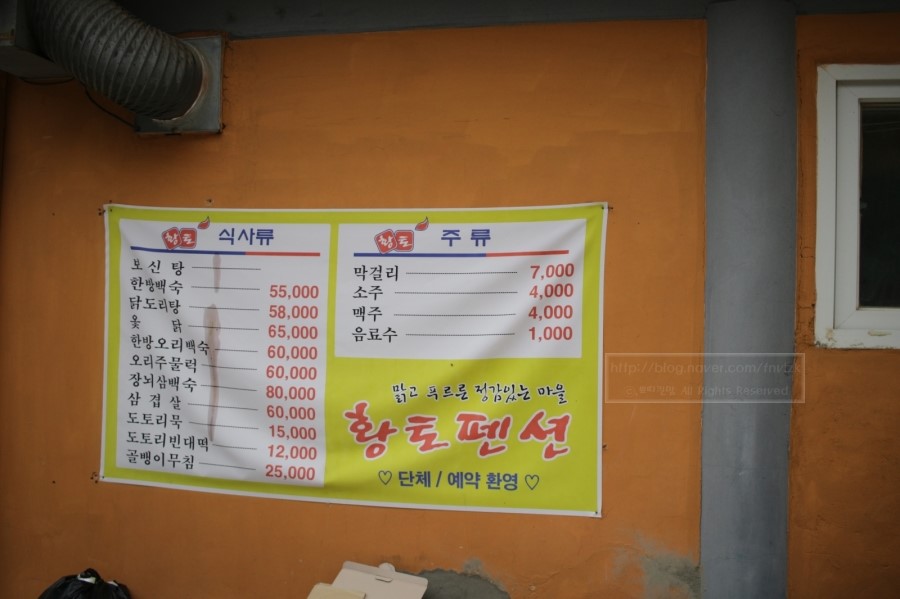 황토 식사류
보 신 탕
한방백숙 55,000
닭도리탕 58,000
옻 닭 65,000
한방오리백숙 60,000
오리주물럭 60,000
장뇌삼백숙 80,000
삼 겹 살 60,000
도토리묵 15,000
도토리빈대떡 12,000
골뱅이무침 25,000
황토 주 류
막걸리 7,000
소주 4,000
맥주 4,000
음료수 1,000
맑고 푸르른 정감있는 마을
황토펜션
♡ 단체 / 예약 환영 ♡
All Rights Reserved